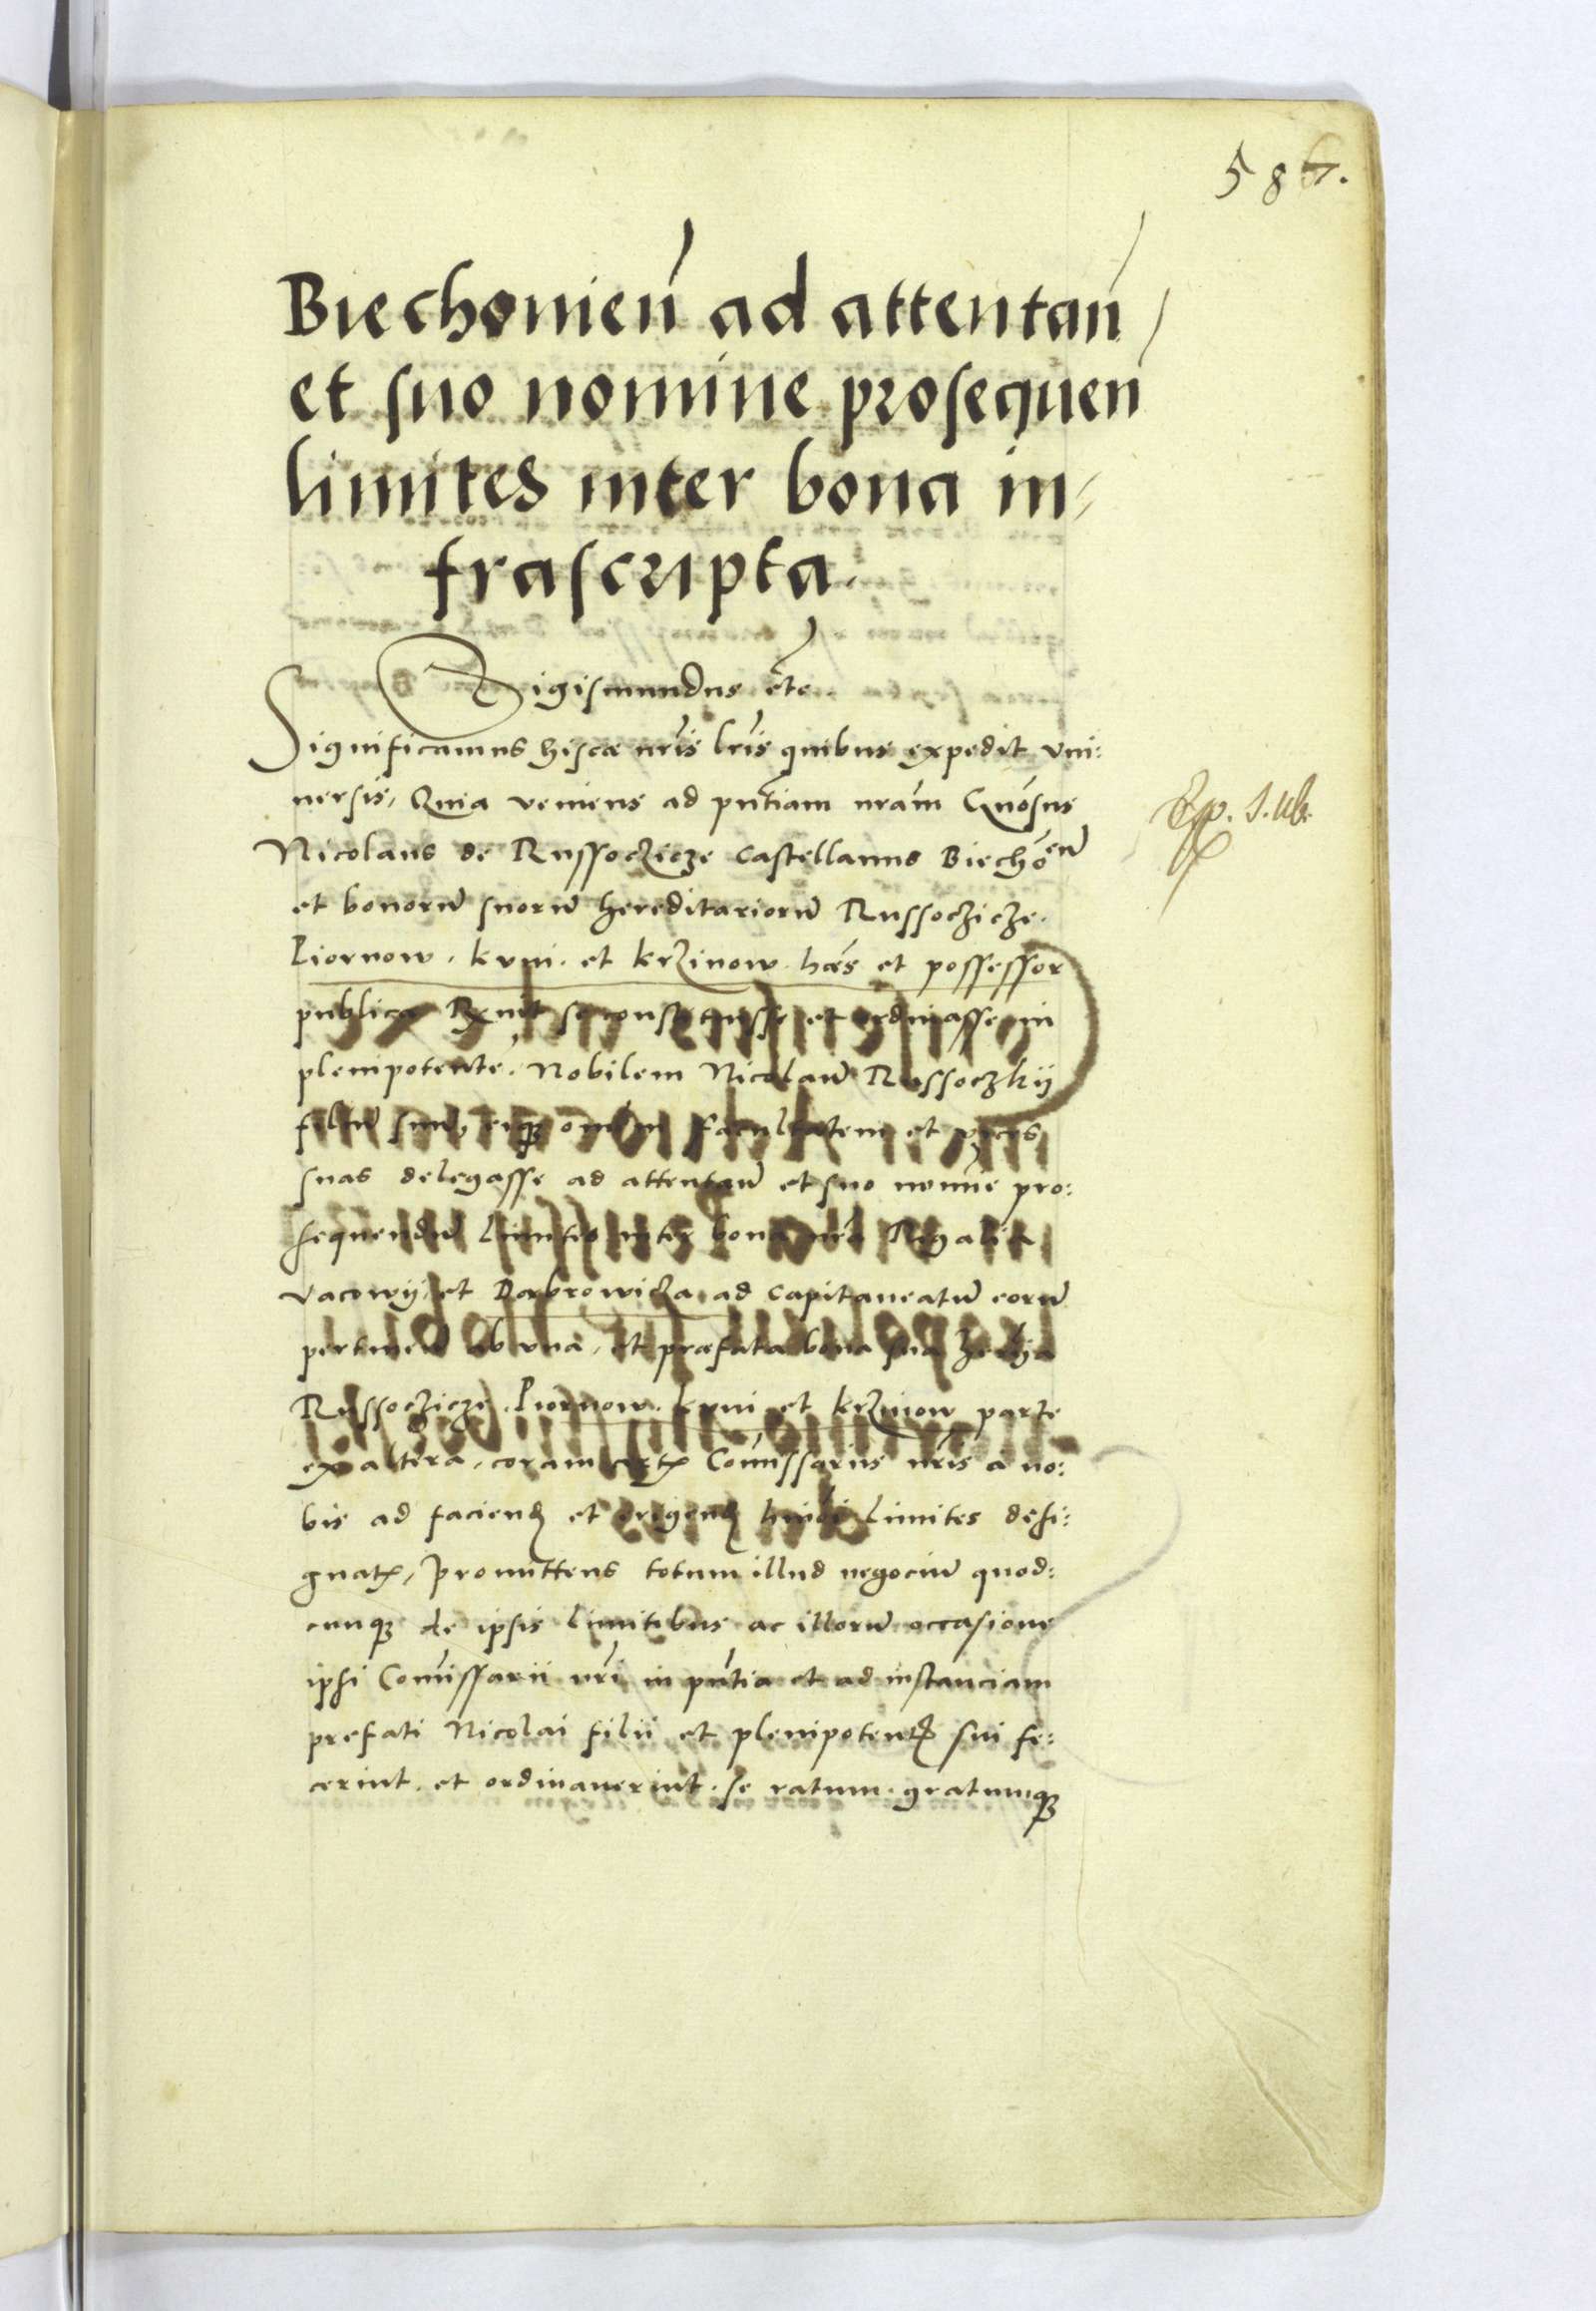 Biechonien̄ ad attentan̄
et suo nomine prosequen̄
limites inter bona in⸗
frascripta.
Sigismundus etc.
Significamus hisce nr̄is lr̄is quibus expedit vni:
uersis, Quia veniens ad pn̄tiam nr̄am Gn̄osus
Nicolaus de Russoczicze Castellanus Biechoēn̄
et bonorū suorū hereditariorū Russoczicze.
Piornow. kvni. et krzinow. hæs et possessor
publice Rec̄nit se constituisse et ordinasse in
plenipotentē. Nobilem Nicolaū Russoczkij
filiū suū, eiqꝫ om̄em facultatem et vices
suas delegasse ad attentan̄ et suo nomīe pro:
sequendū limites inter bona nr̄a Regalia
vacowij et Dabrowicza ad Capitaneatū eorū
pertinen̄ ab vna, et præfata bona sua
Russoczicze. Piornow. kvni et krzinow parte
ex altera, coram cert᷒ Com̄issariis nr̄is a no:
bis ad faciend᷒ et erigend᷒ hui᷒di limites desi:
gnat᷒, Promittens totum illud negociū quod:
cunqꝫ de ipsis limitibus ac illorū occasione
ipsi Com̄issarii nr̄i in pn̄tia et ad instanciam
prefati Nicolai filii et plenipotent᷒ sui fe:
cerint. et ordinauerint. se ratum. gratumqꝫ